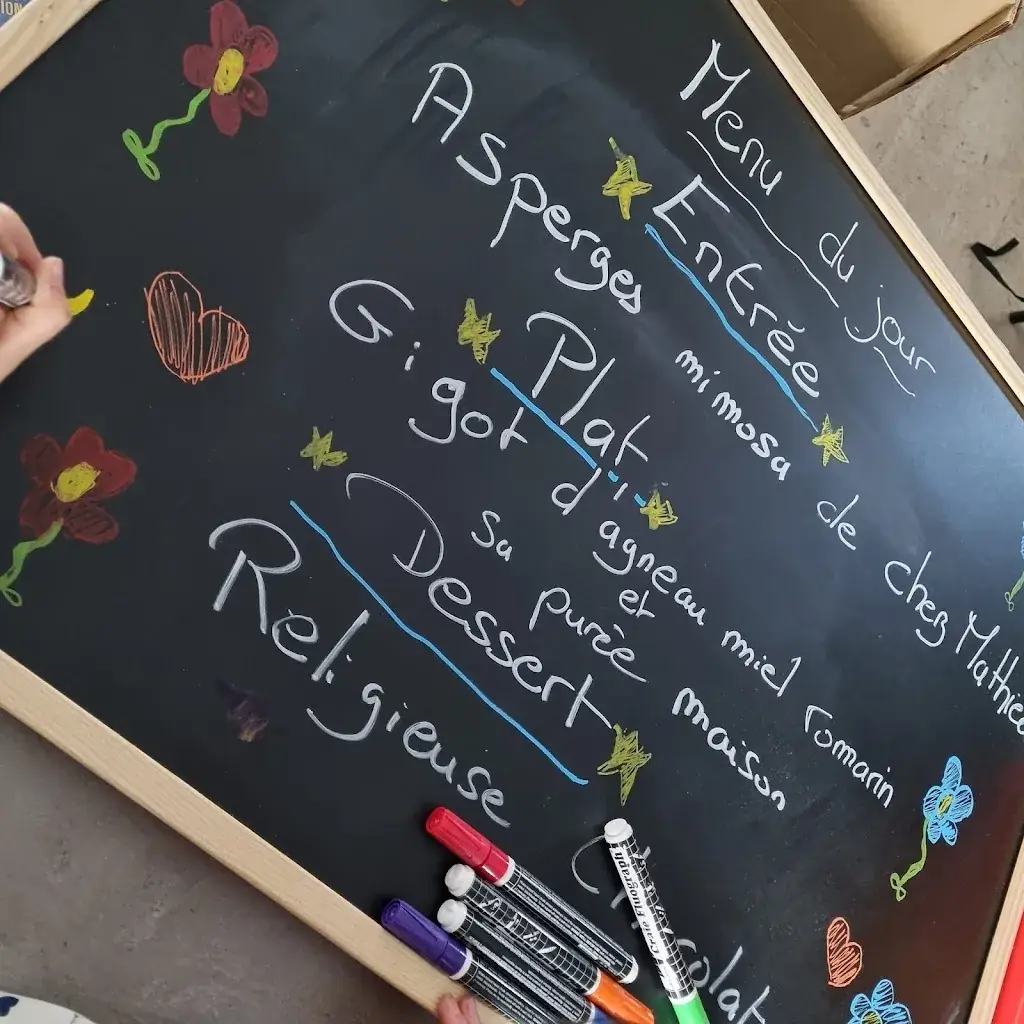 Menu du jour
Entrée
Asperges mimosa de chez Mathieu
Plat
Gigot d'agneau miel romarin
et
sa purée maison
Dessert
Religieuse
Craie Fluograph